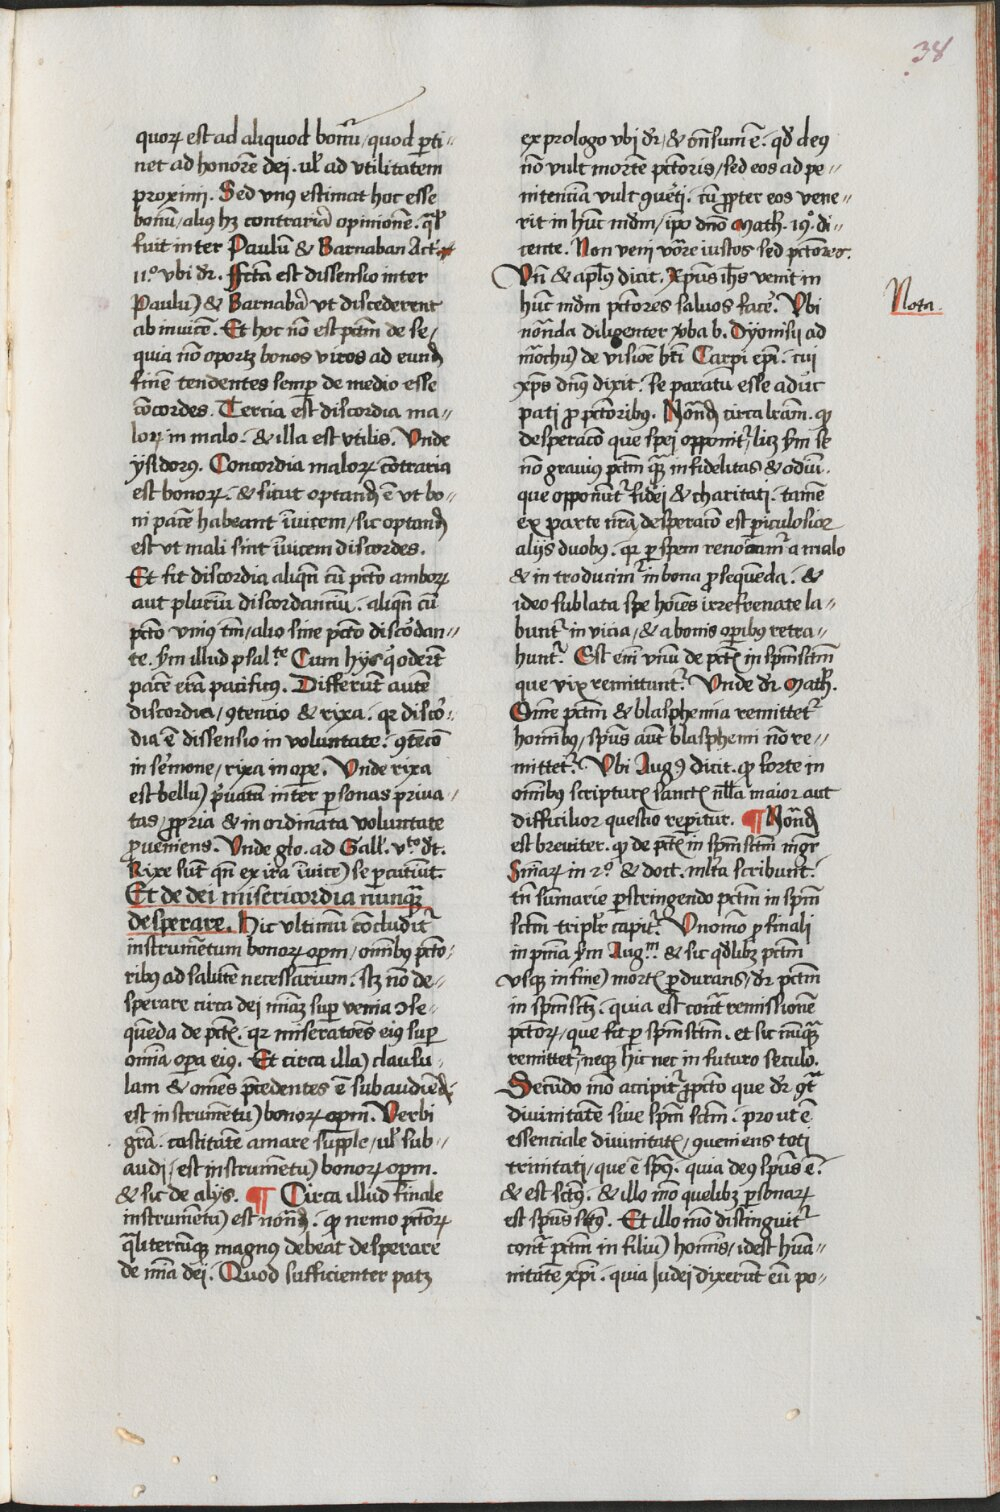 38
quoꝝ est ad aliquod bonū / quod ꝑti-
net ad honorē dei . ul̕ ad vtilitatem
proximi . Sed vnꝰ estimat hoc esse
bonū / aliꝰ hꝫ contrariā opinionē . qͣl̕
fuit inter Paulū & Barnaban Act.
11.º vbi dr̄ . Fctā est dissensio inter
Paulū & Barnabā vt discederent
ab inuicē . Et hoc nō est pctm̄ de se /
quia nō oportꝫ bonos viros ad eundē
finē tendentes semꝑ de medio esse
cōcordes . Tercia est discordia ma-
loꝝ in malo . & illa est vtilis . Vnde
ysidorꝰ . Concordia maloꝝ cōtraria
est bonoꝝ . & sicut optandū ē vt bo-
ni pacē habeant īuicem / sic optandū
est vt mali sint īuicem discordes .
Et fit discordia aliqn̄ cū pctō amboꝝ
aut pluriū discordanciū . aliqn̄ cū
pctō vniꝰ tm̄ / alio sine pctō discordan-
te . ẜm illud psal.te Cum hys q̇ oderūt
pacē erā pacificꝰ . Differūt autē
discordia / ꝯtencio & rixa . qꝛ discor-
dia ē dissensio in voluntate . ꝯtēcō
in ẜmone / rixa in oꝑe . Vnde rixa
est bellū pͥuatū inter ꝑsonas priua-
tas / ꝓpria & inordinata voluntate
ꝓueniens . Vnde glo. ad Gall̕. v.to dr̄ .
Rixe sūt qn̄ ex ira īuicē se ꝑcutiūt .
Et de dei misericordia nunqͣꝫ
desperare . Hic vltimū cōcludit᷑
instrumētum bonoꝝ opm̄ / omībꝰ pctō-
ribꝰ ad salutē necessarium . scꝫ nō de-
sperare circa dei mīaꝫ suꝑ venia ꝯse-
quēda de pctꝭ . qꝛ miseratōes eiꝰ suꝑ
omīa oꝑa eiꝰ . Et circa illā clausu-
lam & omēs p̄cedentes ē subaudiēdū
est instrumētū bonoꝝ opm̄ . Verbi
grā . castitatē amare supple / ul̕ sub-
audi / est instrumētū bonoꝝ opm̄ .
& sic de alijs . ¶ Circa illud finale
instrumētū est notādū . ꝙ nemo pctōꝝ
qͣlitercūqꝫ magnꝰ debeat desperare
de mīa dei . Quod sufficienter patꝫ
ex prologo vbi dr̄ / & cōsum̄ ē . qd̓ deꝰ
nō vult mortē pctōris / sed eos ad pe-
nitenciā vult ꝯuerti . cū ꝓpter eos vene-
rit in hūc mdm̄ / ipō dnō Math. 19.º di-
cente . Non veni vōare iustos sed pctōres .
Vn̄ & apl̕us dicit . Xp̄us ih̄s venit in
hūc mdm̄ pctōres saluos facē . Vbi
notāda diligenter v̓ba b. Dyonisii ad
māchū de visiōe bt̄i Carpi ep̄i . cui
xp̄s dnꝰ dixit . se paratū esse adhuc
pati ꝓ pctōribꝰ . Notādū circa lrām . ꝙ
desperacō que spei opponit᷑ / licꝫ ẜm se
nō grauiꝰ pctm̄ qͣꝫ infidelitas & odiū .
que opponūt᷑ fidei & charitati . tamē
ex parte nrā desperacō est ꝑiculosior
alijs duobꝰ . qꝛ ꝑ spem reuocamᷣ a malo
& introducimᷣ in bona ꝓsequenda . &
ideo sublata spe hoīes irrefrenate la-
bunt᷑ in vicia / & a bonis oꝑibus retra-
hunt᷑ . Est em̄ vnū de pctꝭ in spm̄sctm̄
que vix remittunt᷑ . Vnde dr̄ Math.
Om̄e pctm̄ & blasphemia remittet᷑
homībꝰ / spūs aūt blasphemi nō re-
mittet᷑ . Vbi Augꝰ dicit . ꝙ forte in
omībus scripturꝭ sanctꝭ nll̄a maior aut
difficilior questio reꝑitur . ¶ Notādū
est breuiter . ꝙ de pctꝭ in spm̄sctm̄ mgr̄
Sniaꝝ in 2º & doct. mlt̄a scribunt .
tn̄ sumarie ꝑstringendo pctm̄ in spm̄
sctm̄ tripl̕r capit᷑ . Vnomō ꝓ finali
in pnīa ẜm Aug.m & sic qd̓libꝫ pctm̄
vsqꝫ in finē mortꝭ ꝑdurans / dr̄ pctm̄
in spm̄sctꝫ . quia est cont̄ remissionē
pctōꝝ / que fit ꝑ spm̄sctm̄ . et sic nūqͣꝫ
remittet᷑ / neqꝫ hic nec in futuro seculo .
Secundo mō accipit᷑ ꝓ pctō que dr̄ ꝯt̄
diuinitatē siue spm̄ sctm̄ . pro ut ē
essenciale diuinitatꝭ / ꝯueniens toti
trinitati / que ē spūs . quia deꝰ spūs ē .
& est sctꝰ . & illo mō quelibꝫ ꝑsonaꝝ
est spūs sctꝰ . Et illo mō distinguit᷑
cont̄ pctm̄ in filiū homīs / idest hūa-
nitatē xp̄i . quia Judei dixerūt eū po-
Nota .